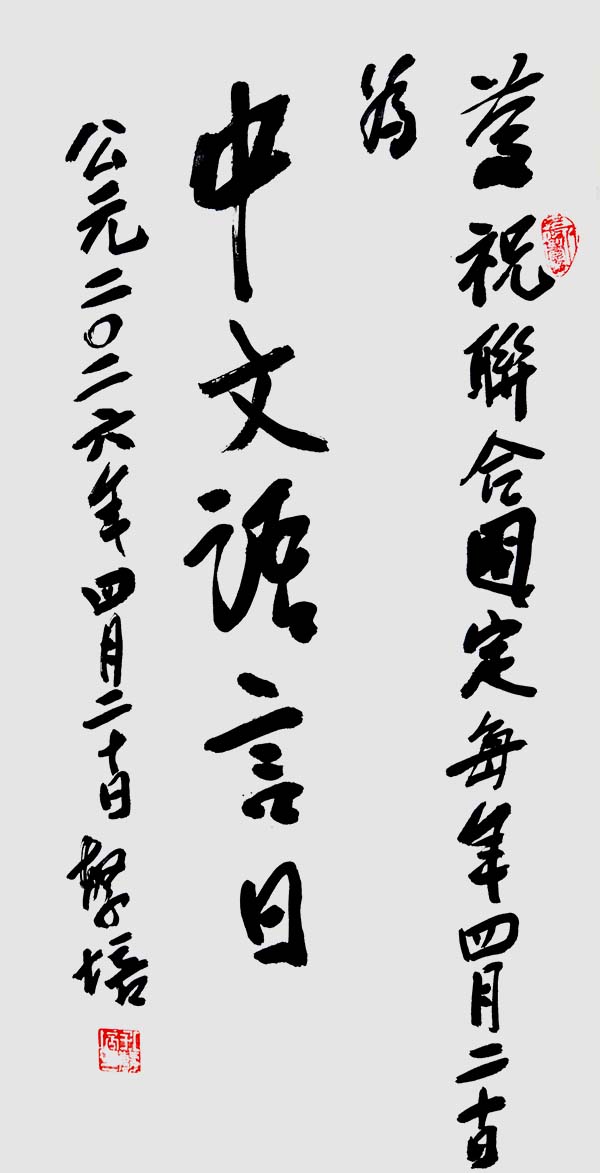 慶祝聯合國定每年四月二十日
為
中文語言日
公元二〇二六年四月二十日 培